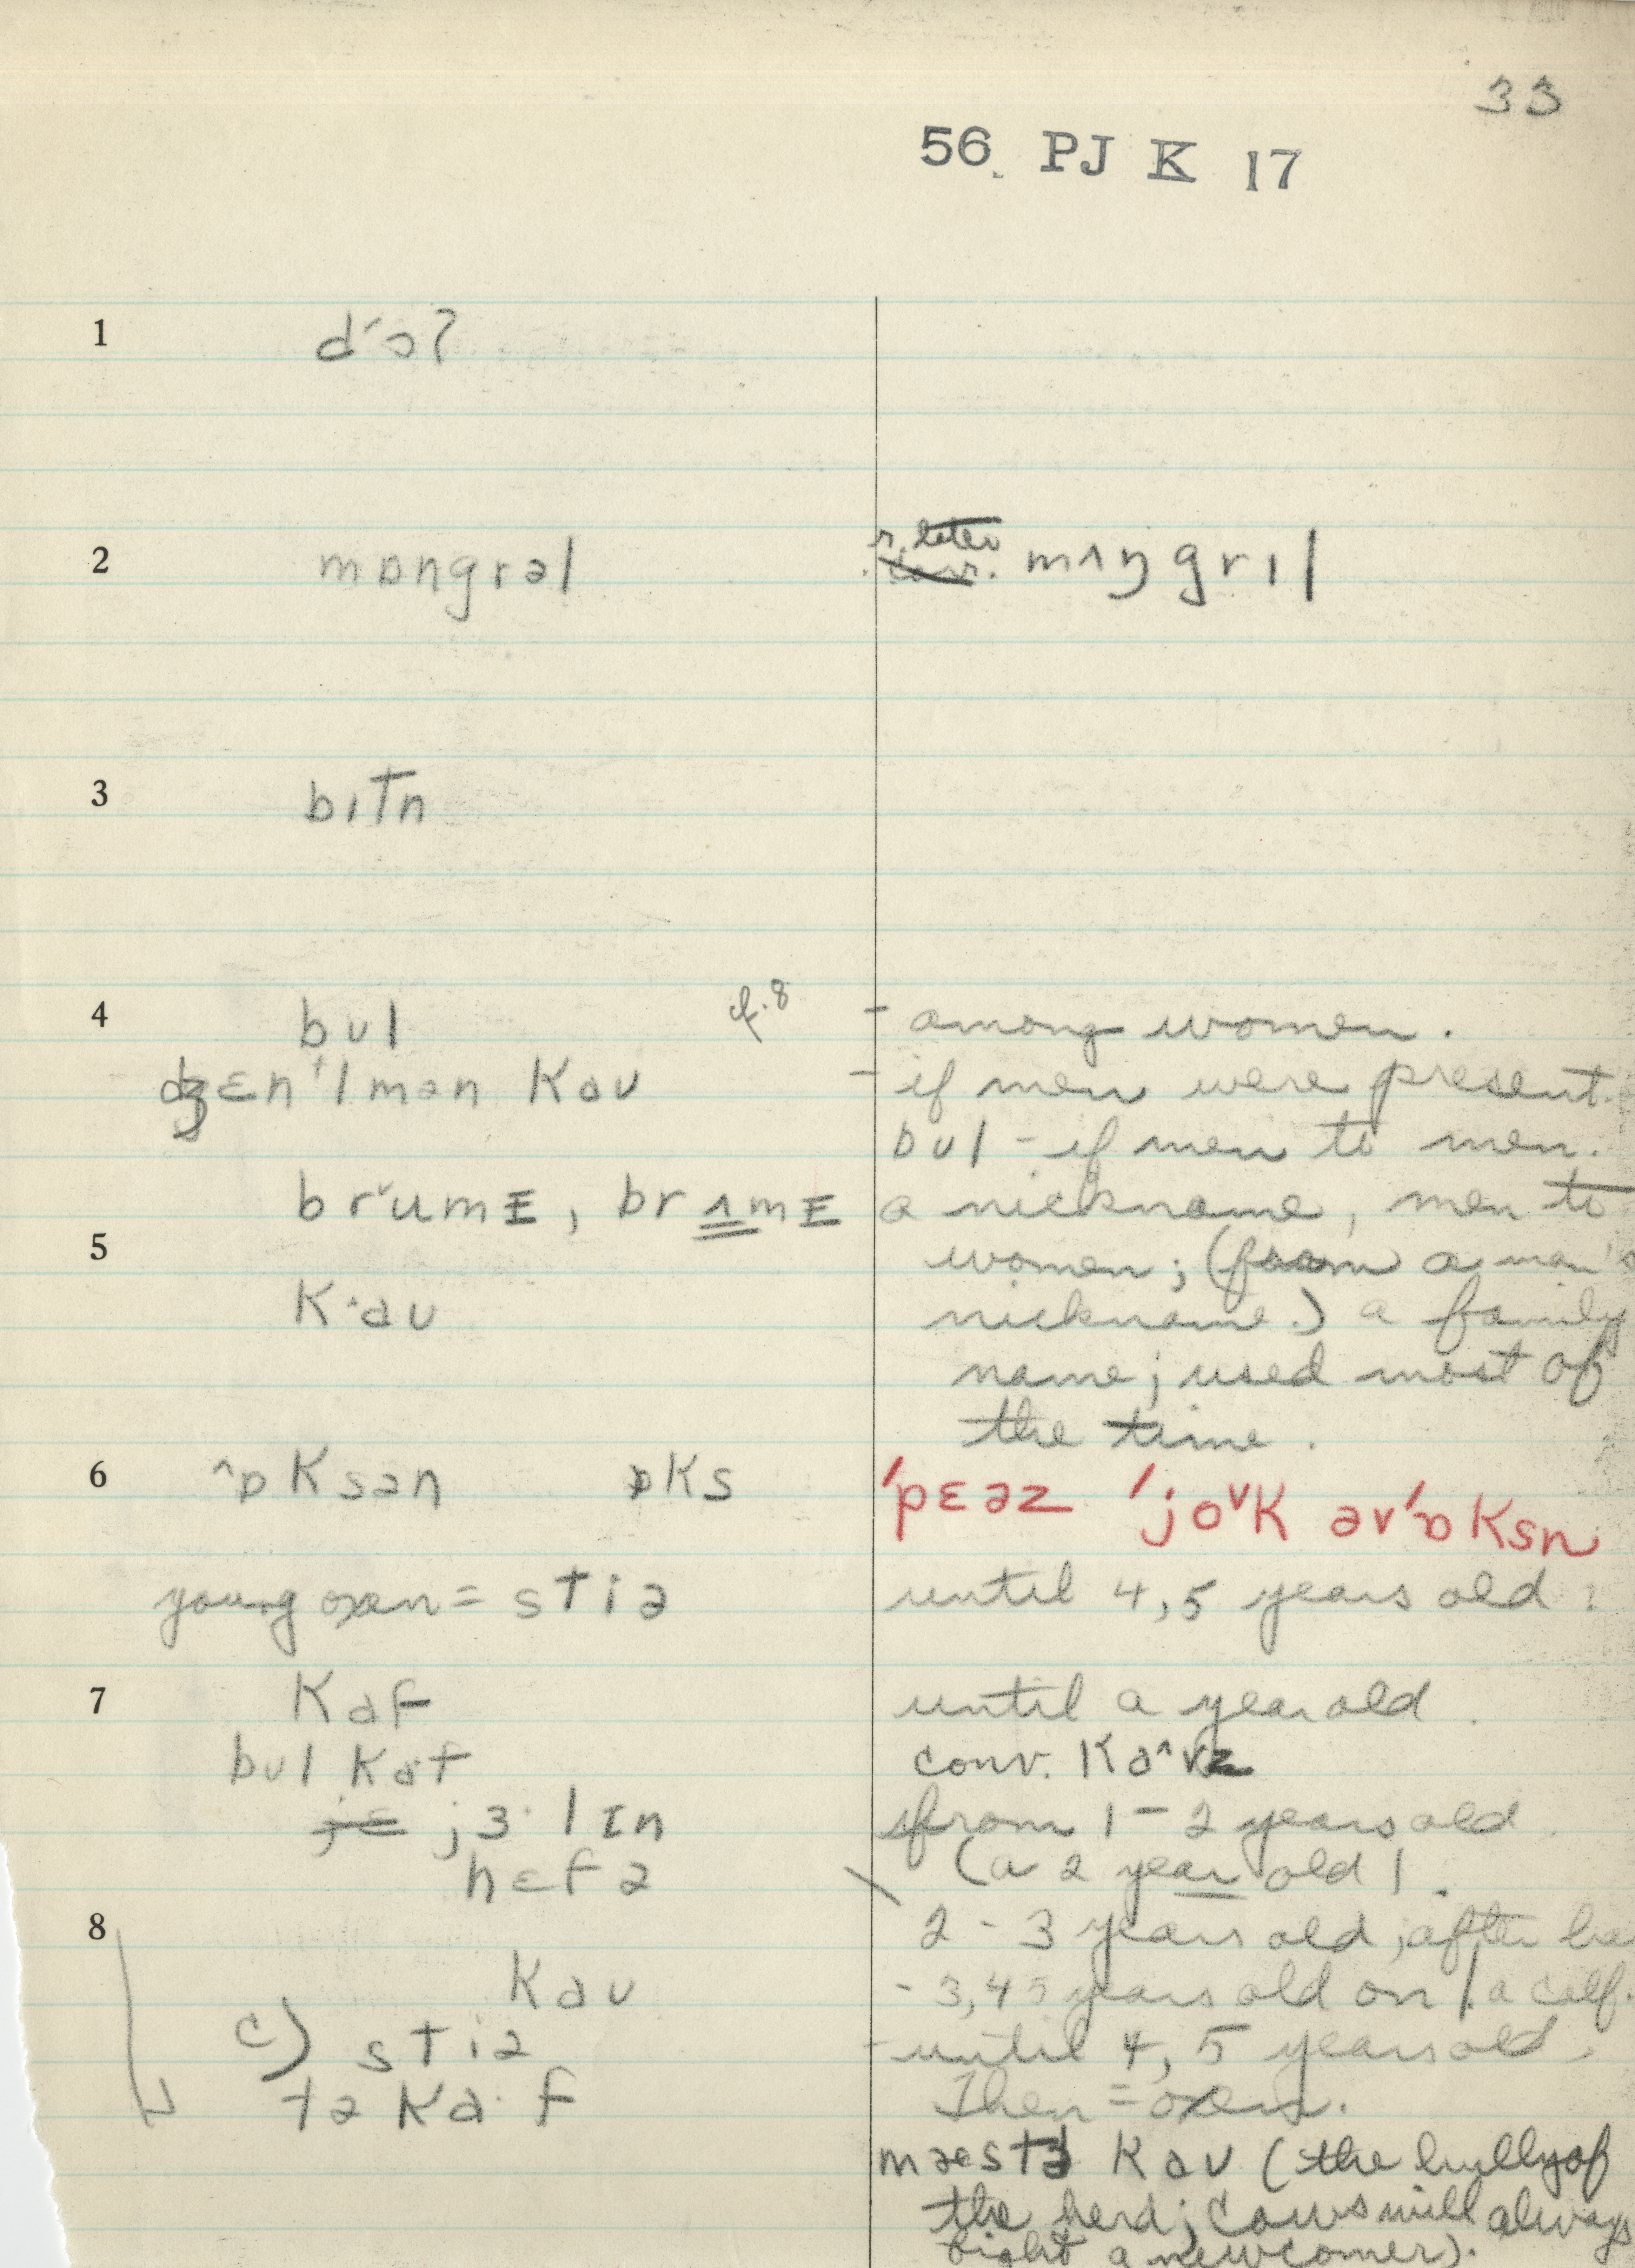 33
56. PJ K 17
1 dˊɔ?
2 mɒngrəl r. later mʌŋgrɪl
3 bɪTn
4 bʊl cf. 8 - among women.
ʤɛnˈlmən Kaʊ - if men were present.
bʊl - if men to men.
brˇumE, brʌmE a nickname, men to
5 women; (from a man's
K·aʊ nickname.) a family
name; used most of
the time.
6 ^ɒKsən ɒKs ˈpɛəz ˈjoˇK əvˈɒKsn
young oxen = stiə until 4, 5 years old.
7 Kaf until a year old.
bʊl Kaf conv. Ka^vz
jɛ jɜ·lɪn from 1-2 years old.
hɛfə (a 2 year old).
8 2-3 years old; after ha
Kaʊ - 3, 4 5 years old on / a calf.
c) stiə - until 4, 5 years old.
tə Ka·f Then = oxen.
mæstə Kaʊ (the bully of
the herd; cows will always
fight a newcomer).